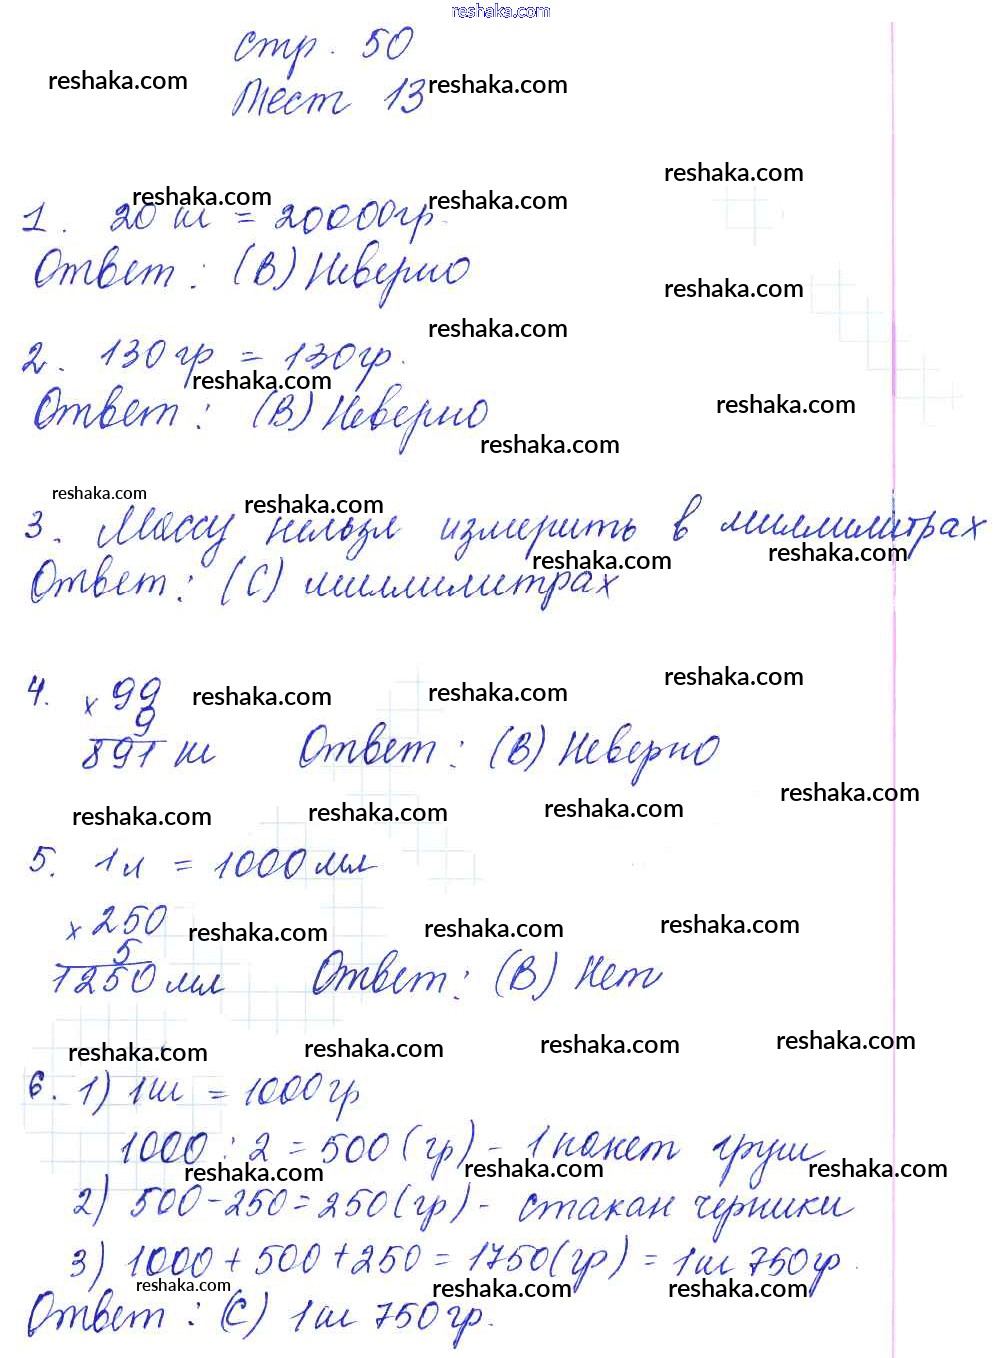 reshaka.com
стр. 50
reshaka.com reshaka.com
Тест 13
reshaka.com
reshaka.com reshaka.com
1. 20 кг = 20000гр.
Ответ: (В) Неверно
reshaka.com
reshaka.com
2. 130гр = 130гр.
reshaka.com
Ответ: (В) Неверно
reshaka.com
reshaka.com
reshaka.com reshaka.com
3. Массу нельзя измерить в миллилитрах
reshaka.com reshaka.com
Ответ: (С) миллилитрах
4. х 99
9
891 кг Ответ: (В) Неверно
reshaka.com reshaka.com reshaka.com
reshaka.com reshaka.com reshaka.com reshaka.com
5. 1л = 1000мл
х 250
5
1250мл Ответ: (В) Нет
reshaka.com reshaka.com reshaka.com
reshaka.com reshaka.com reshaka.com reshaka.com
6. 1) 1кг = 1000гр
1000 : 2 = 500(гр) - 1пакет груш
reshaka.com reshaka.com reshaka.com
2) 500-250=250(гр) - стакан черники
3) 1000+500+250=1750(гр)=1кг 750гр.
reshaka.com reshaka.com reshaka.com
Ответ: (С) 1кг 750гр.